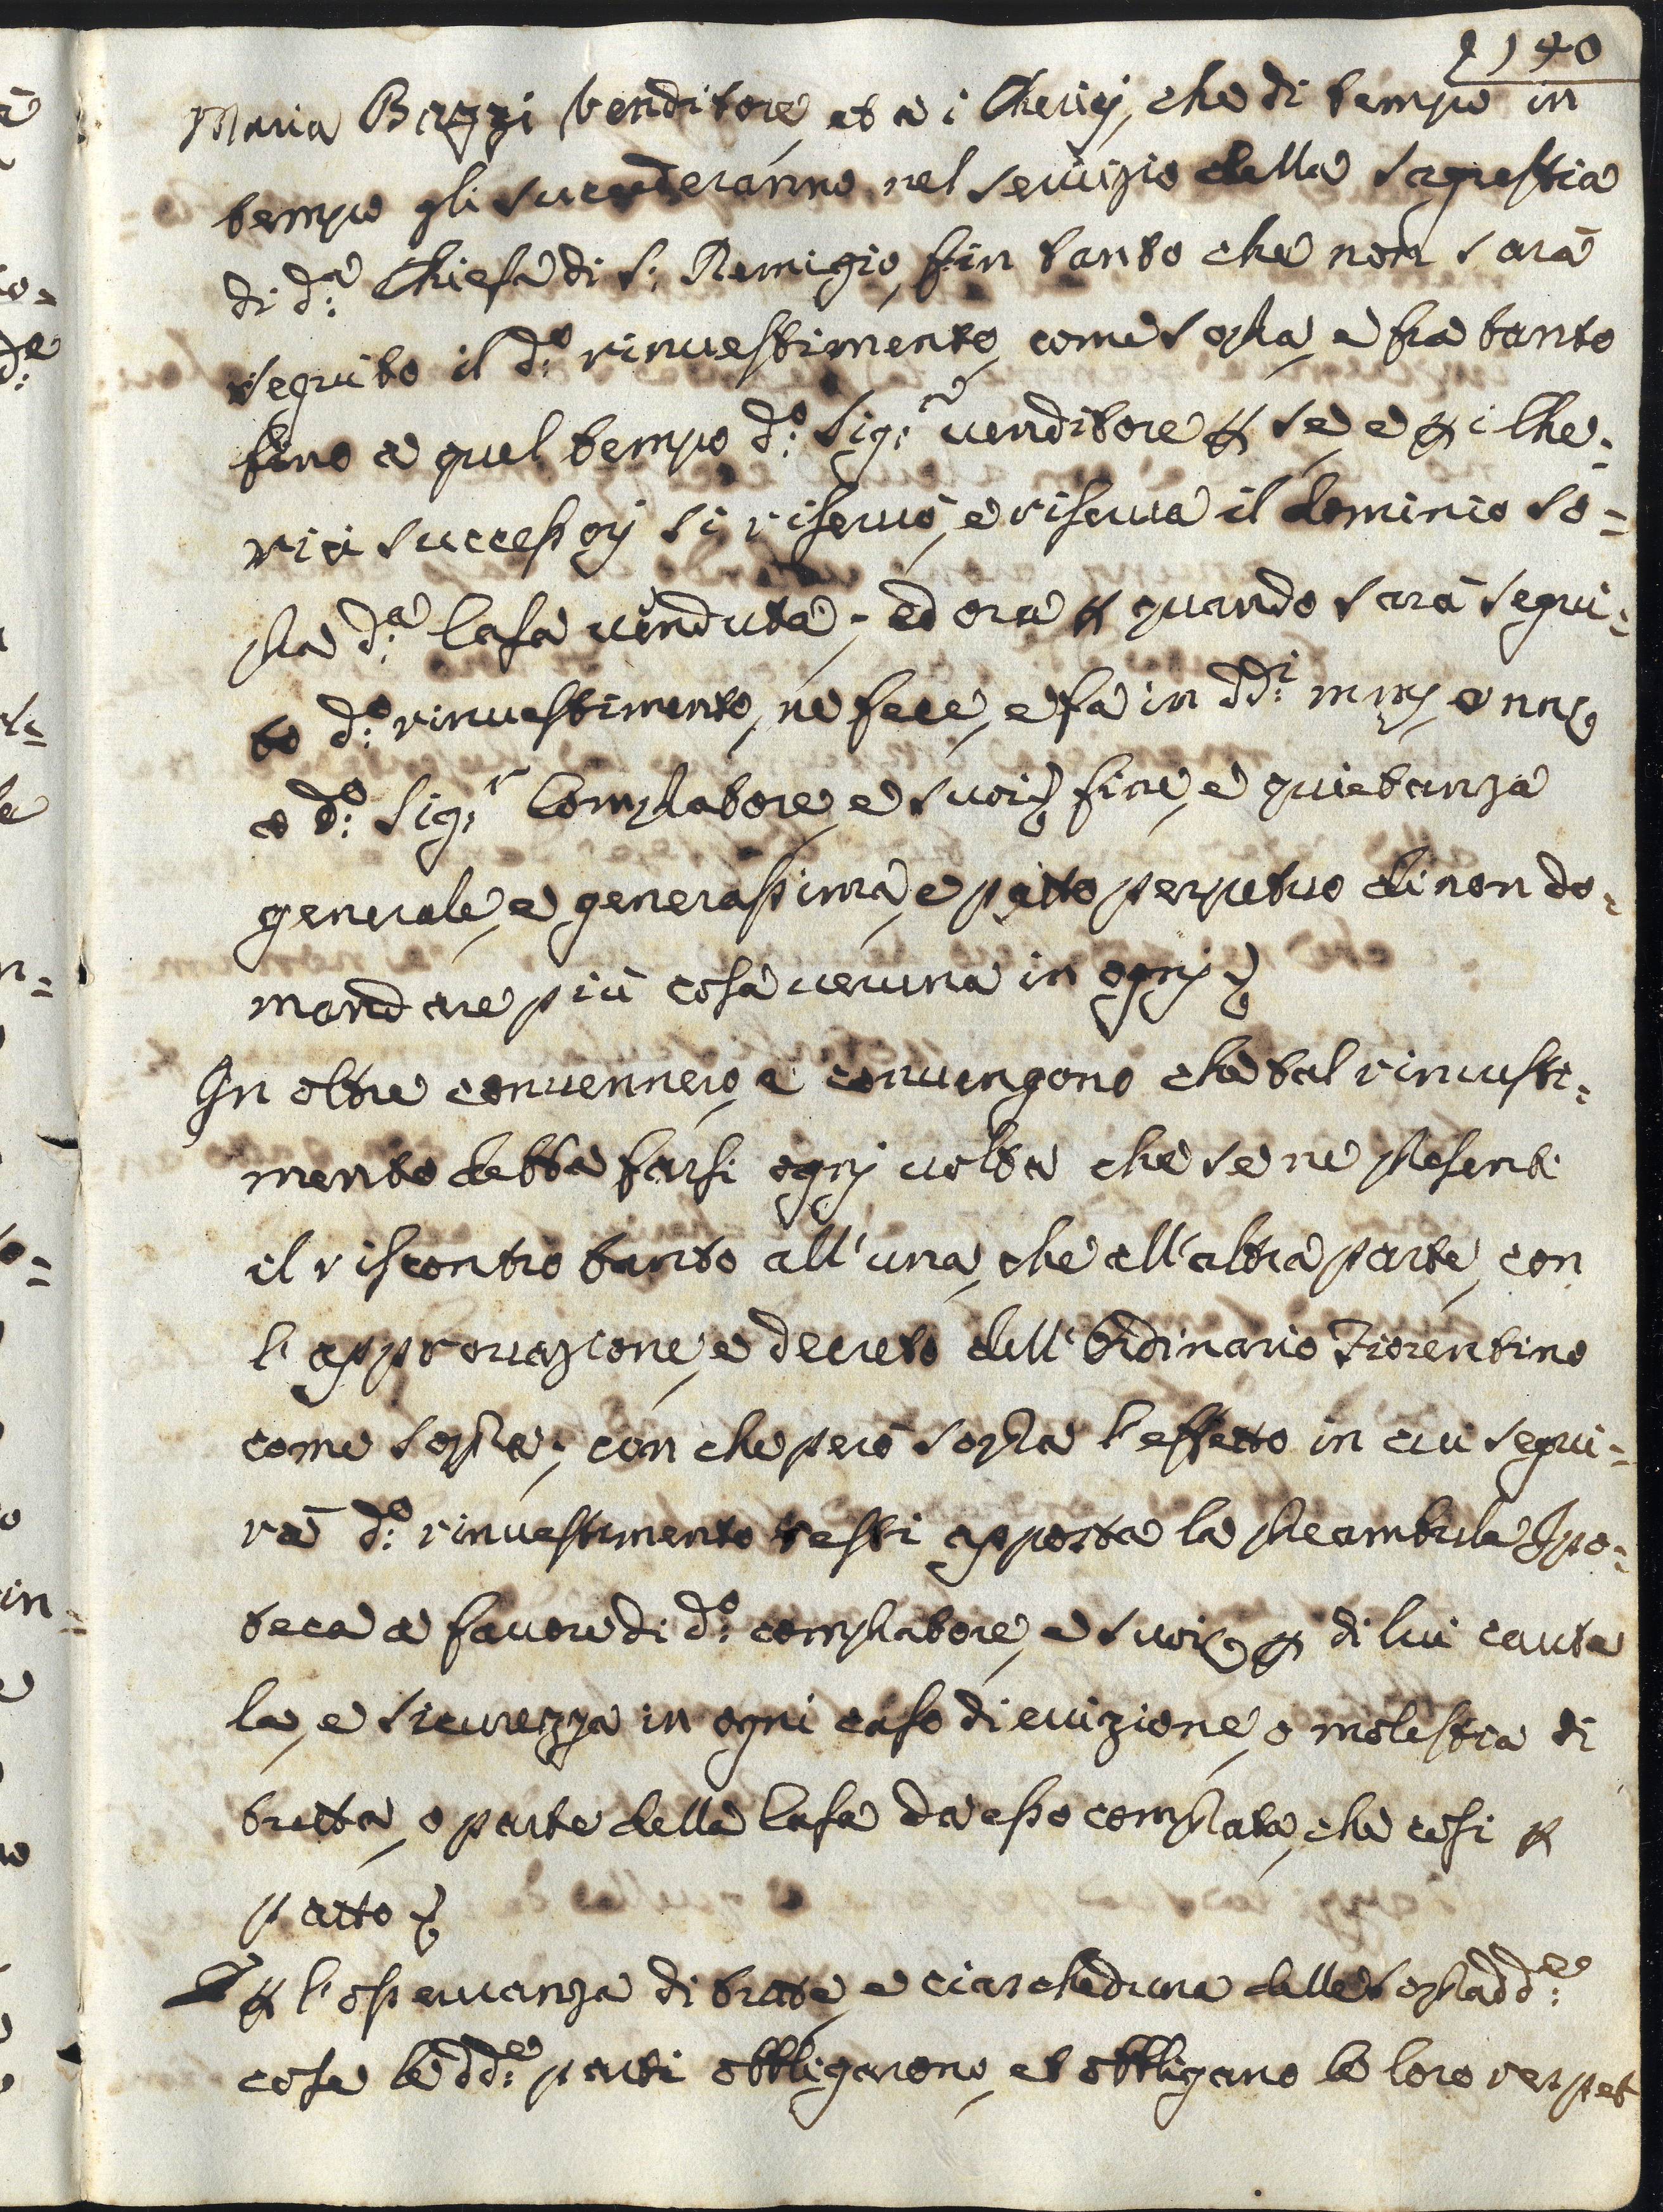 140
Maria Bazzi Venditore, et a i Cherici, che di tempo in
tempo gli succederanno nel servizio della sagrestia
di d:ª Chiesa di S: Remigio, fin tanto che non sarà
seguito il d:º rinvestimento, come sopra, e fra tanto
fino a quel tempo d:º Sig:re venditore p se e p i Che=
rici successorj si riservò, e riserva il dominio so=
pra d:ª Casa venduta; ed ora p quando sarà segui=
to d:º rinvestimento, ne fece, e fa in dd:i
a d:º Sig:r Compratore, e suoi fine, e quietanza
generale, e generalissima, e patto perpetuo di non do=
mandare più cosa veruna in ognj
In oltre convennero, e convengono che tal rinvesti=
mento debba farsi ognj volta che se ne presenti
il riscontro tanto all'una, che all'altra parte, con
l'approvazione, e decreto dell'Ordinario Fiorentino
come sopra; con che però sopra l'effetto in cui segui=
rà d:º rinvestimento resti apposta la preambula Ipo=
teca a favore di d:º compratore, e suoi p di lui caute
la, e sicurezza in ogni caso di evizione, o molestia di
tutta, o parte della Casa da esso comprata, che così p
patto
E p l'osservanza di tutte, e ciascheduna delle sopradd:e
cose le dd:e parti obbligarono, et obbligano le loro respet